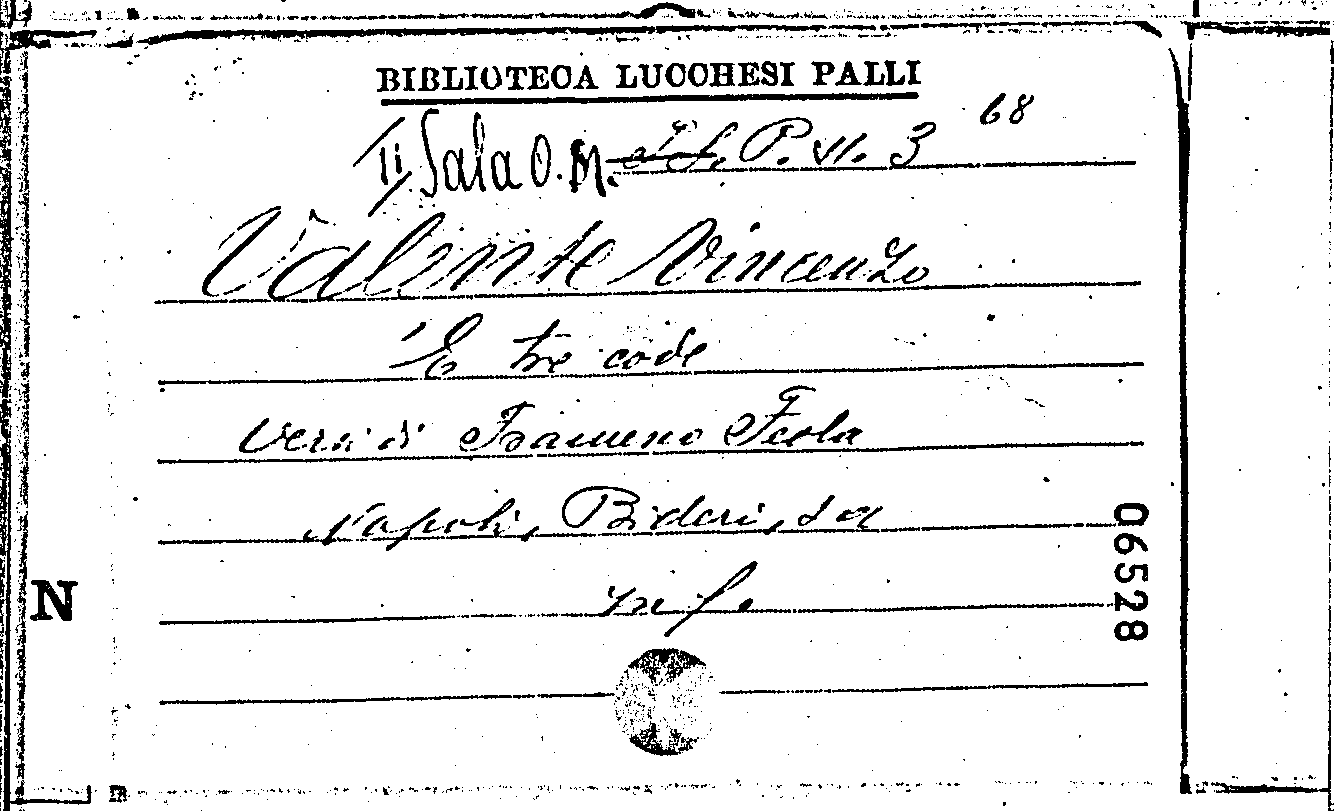 BIBLIOTECA LUCCHESI PALLI
II Sala O. M. P. VI. 3 68
Valente Vincenzo
'E tre code
Versi di Francesco Feola
Napoli, Bideri, s a
in f.
N
06528